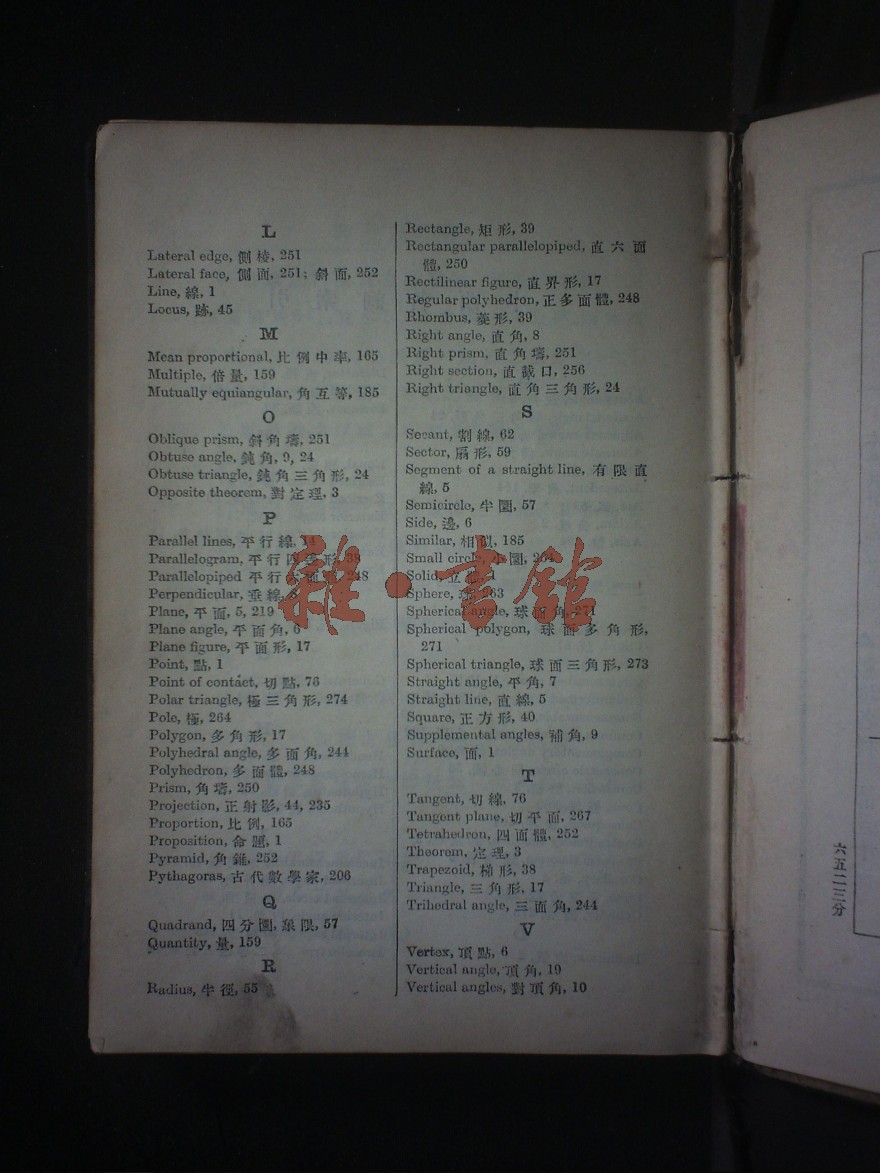 L
Lateral edge, 側棱, 251
Lateral face, 側面, 251; 斜面, 252
Line, 線, 1
Locus, 跡, 45
M
Mean proportional, 比例中率, 165
Multiple, 倍量, 159
Mutually equiangular, 角互等, 185
O
Oblique prism, 斜角壔, 251
Obtuse angle, 鈍角, 9, 24
Obtuse triangle, 鈍角三角形, 24
Opposite theorem, 對定理, 3
P
Parallel lines, 平行線,
Parallelogram, 平行四邊形, 38
Parallelopiped 平行六面體, 248
Perpendicular, 垂線,
Plane, 平面, 5, 219
Plane angle, 平面角, 6
Plane figure, 平面形, 17
Point, 點, 1
Point of contact, 切點, 76
Polar triangle, 極三角形, 274
Pole, 極, 264
Polygon, 多角形, 17
Polyhedral angle, 多面角, 244
Polyhedron, 多面體, 248
Prism, 角壔, 250
Projection, 正射影, 44, 235
Proportion, 比例, 165
Proposition, 命題, 1
Pyramid, 角錐, 252
Pythagoras, 古代數學家, 206
Q
Quadrand, 四分圜, 象限, 57
Quantity, 量, 159
R
Radius, 半徑, 55
Rectangle, 矩形, 39
Rectangular parallelopiped, 直六面
體, 250
Rectilinear figure, 直界形, 17
Regular polyhedron, 正多面體, 248
Rhombus, 菱形, 39
Right angle, 直角, 8
Right prism, 直角壔, 251
Right section, 直截口, 256
Right triangle, 直角三角形, 24
S
Secant, 割線, 62
Sector, 扇形, 59
Segment of a straight line, 有限直
線, 5
Semicircle, 半圜, 57
Side, 邊, 6
Similar, 相似, 185
Small circle, 小圜, 264
Solid, 立體, 1
Sphere, 球, 263
Spherical angle, 球面角, 271
Spherical polygon, 球面多角形,
271
Spherical triangle, 球面三角形, 273
Straight angle, 平角, 7
Straight line, 直線, 5
Square, 正方形, 40
Supplemental angles, 補角, 9
Surface, 面, 1
T
Tangent, 切線, 76
Tangent plane, 切平面, 267
Tetrahedron, 四面體, 252
Theorem, 定理, 3
Trapezoid, 梯形, 38
Triangle, 三角形, 17
Trihedral angle, 三面角, 244
V
Vertex, 頂點, 6
Vertical angle, 頂角, 19
Vertical angles, 對頂角, 10
雜·書館
六五二三分